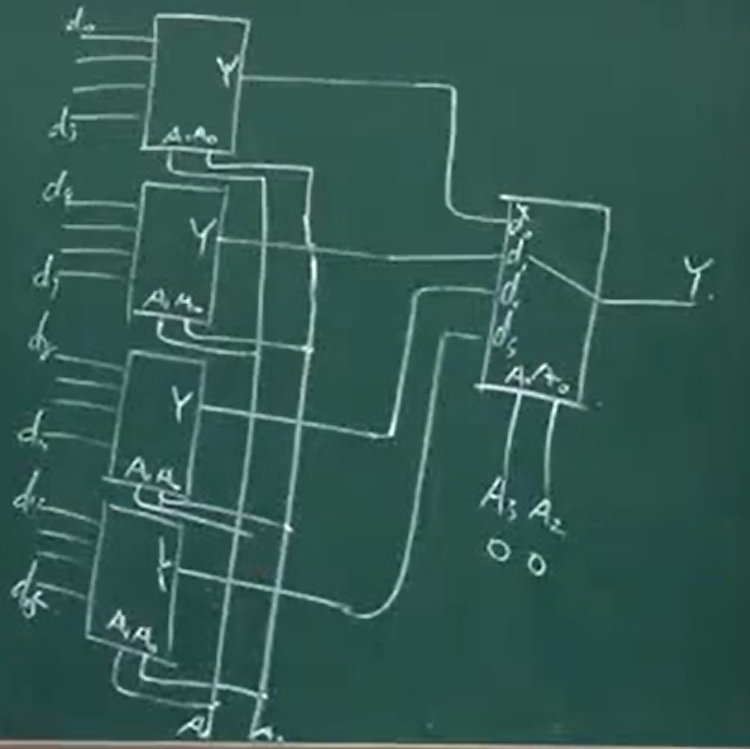 d₀
Y
d₃
A₁ A₀
d₄
Y
d₇
A₁ A₀
d₈
Y
d₁₁
A₁ A₀
d₁₂
Y
d₁₅
A₁ A₀
A₁ A₀
d₀
d₁
d₂
d₃
A₁ A₀
Y
A₃ A₂
0 0